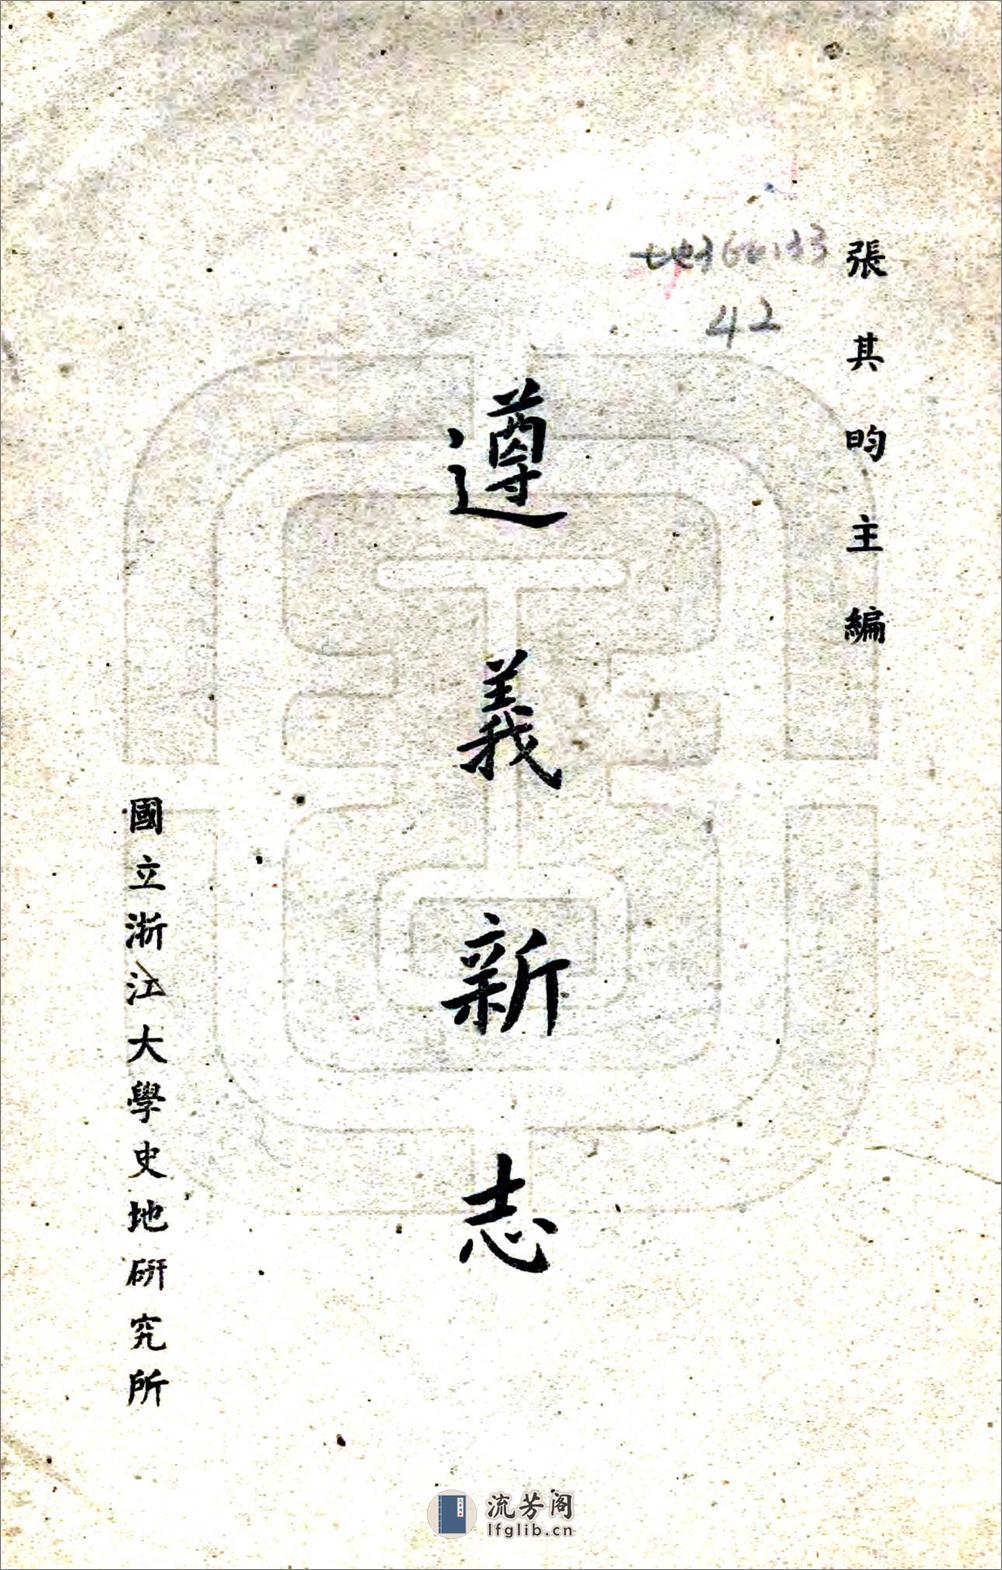 張其昀主編
42
遵義新志
國立浙江大學史地研究所
流芳阁
lfglib.cn